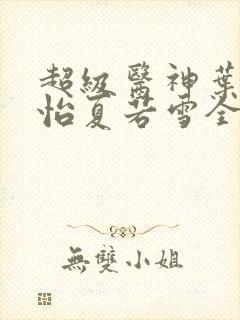 超級醫神葉
怡夏若雪全
無雙小姐